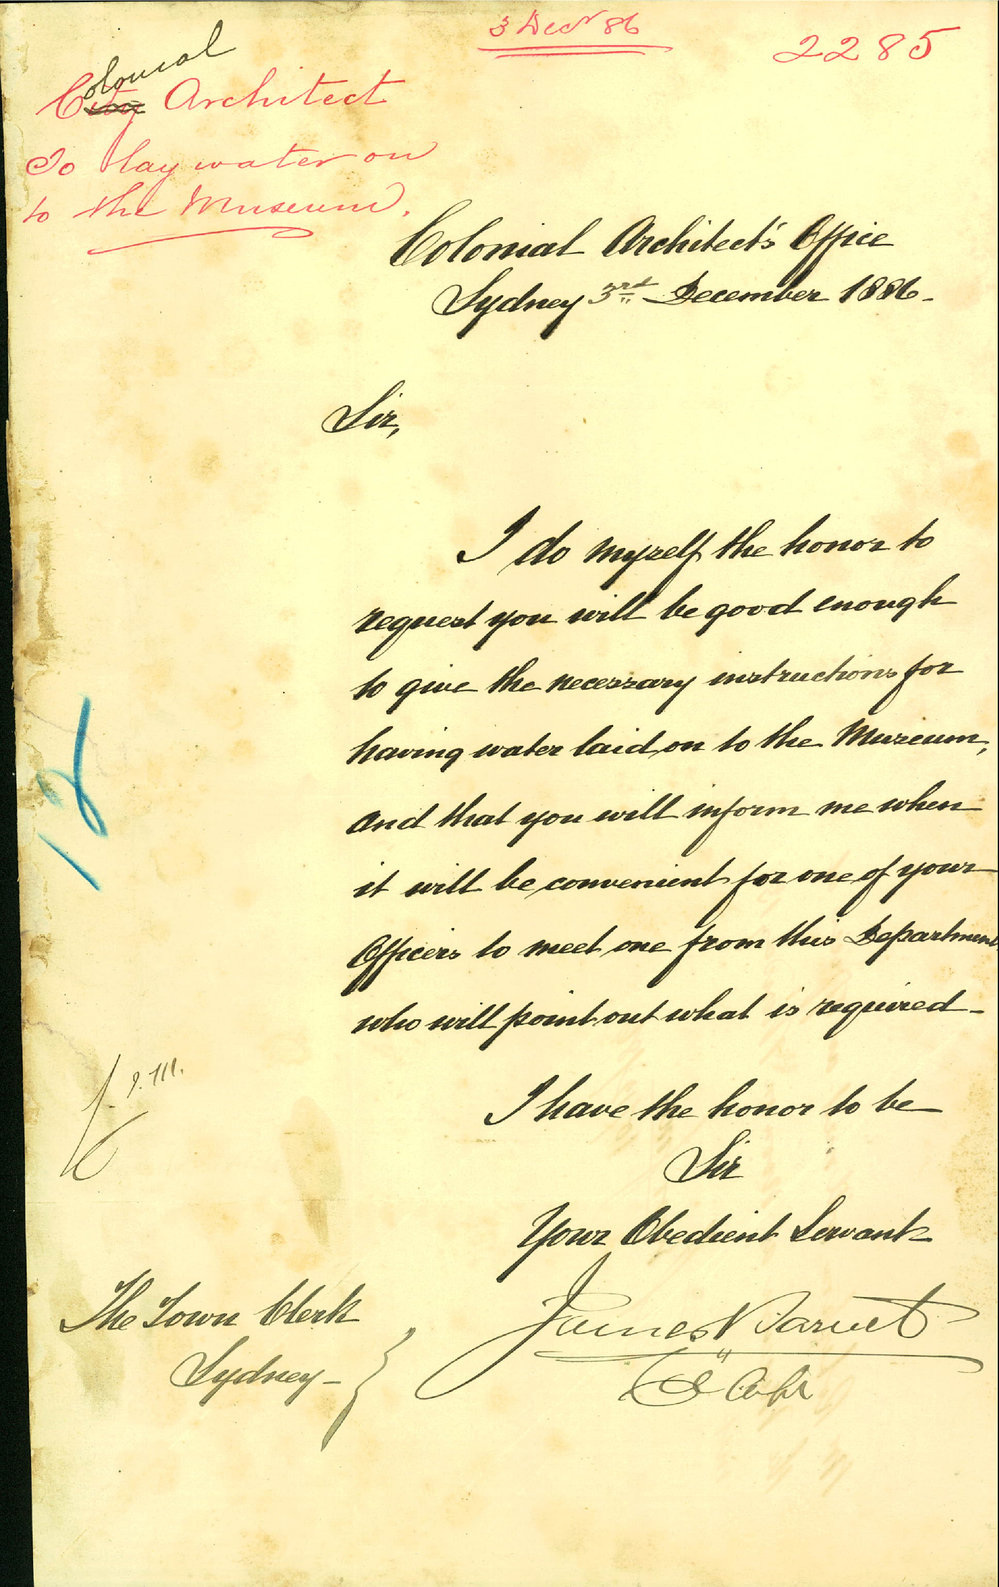 3 Decr 86
2285
Colonial
City Architect
To lay water on
to the Museum.
Colonial Architect's Office
Sydney 3rd December 1886 -
Sir,
I do myself the honor to
request you will be good enough
to give the necessary instructions for
having water laid on to the Museum,
and that you will inform me when
it will be convenient for one of your
Officers to meet one from this Department
who will point out what is required -
12
I have the honor to be
Sir
Your Obedient Servant
James Barnet
The Town Clerk
Sydney -